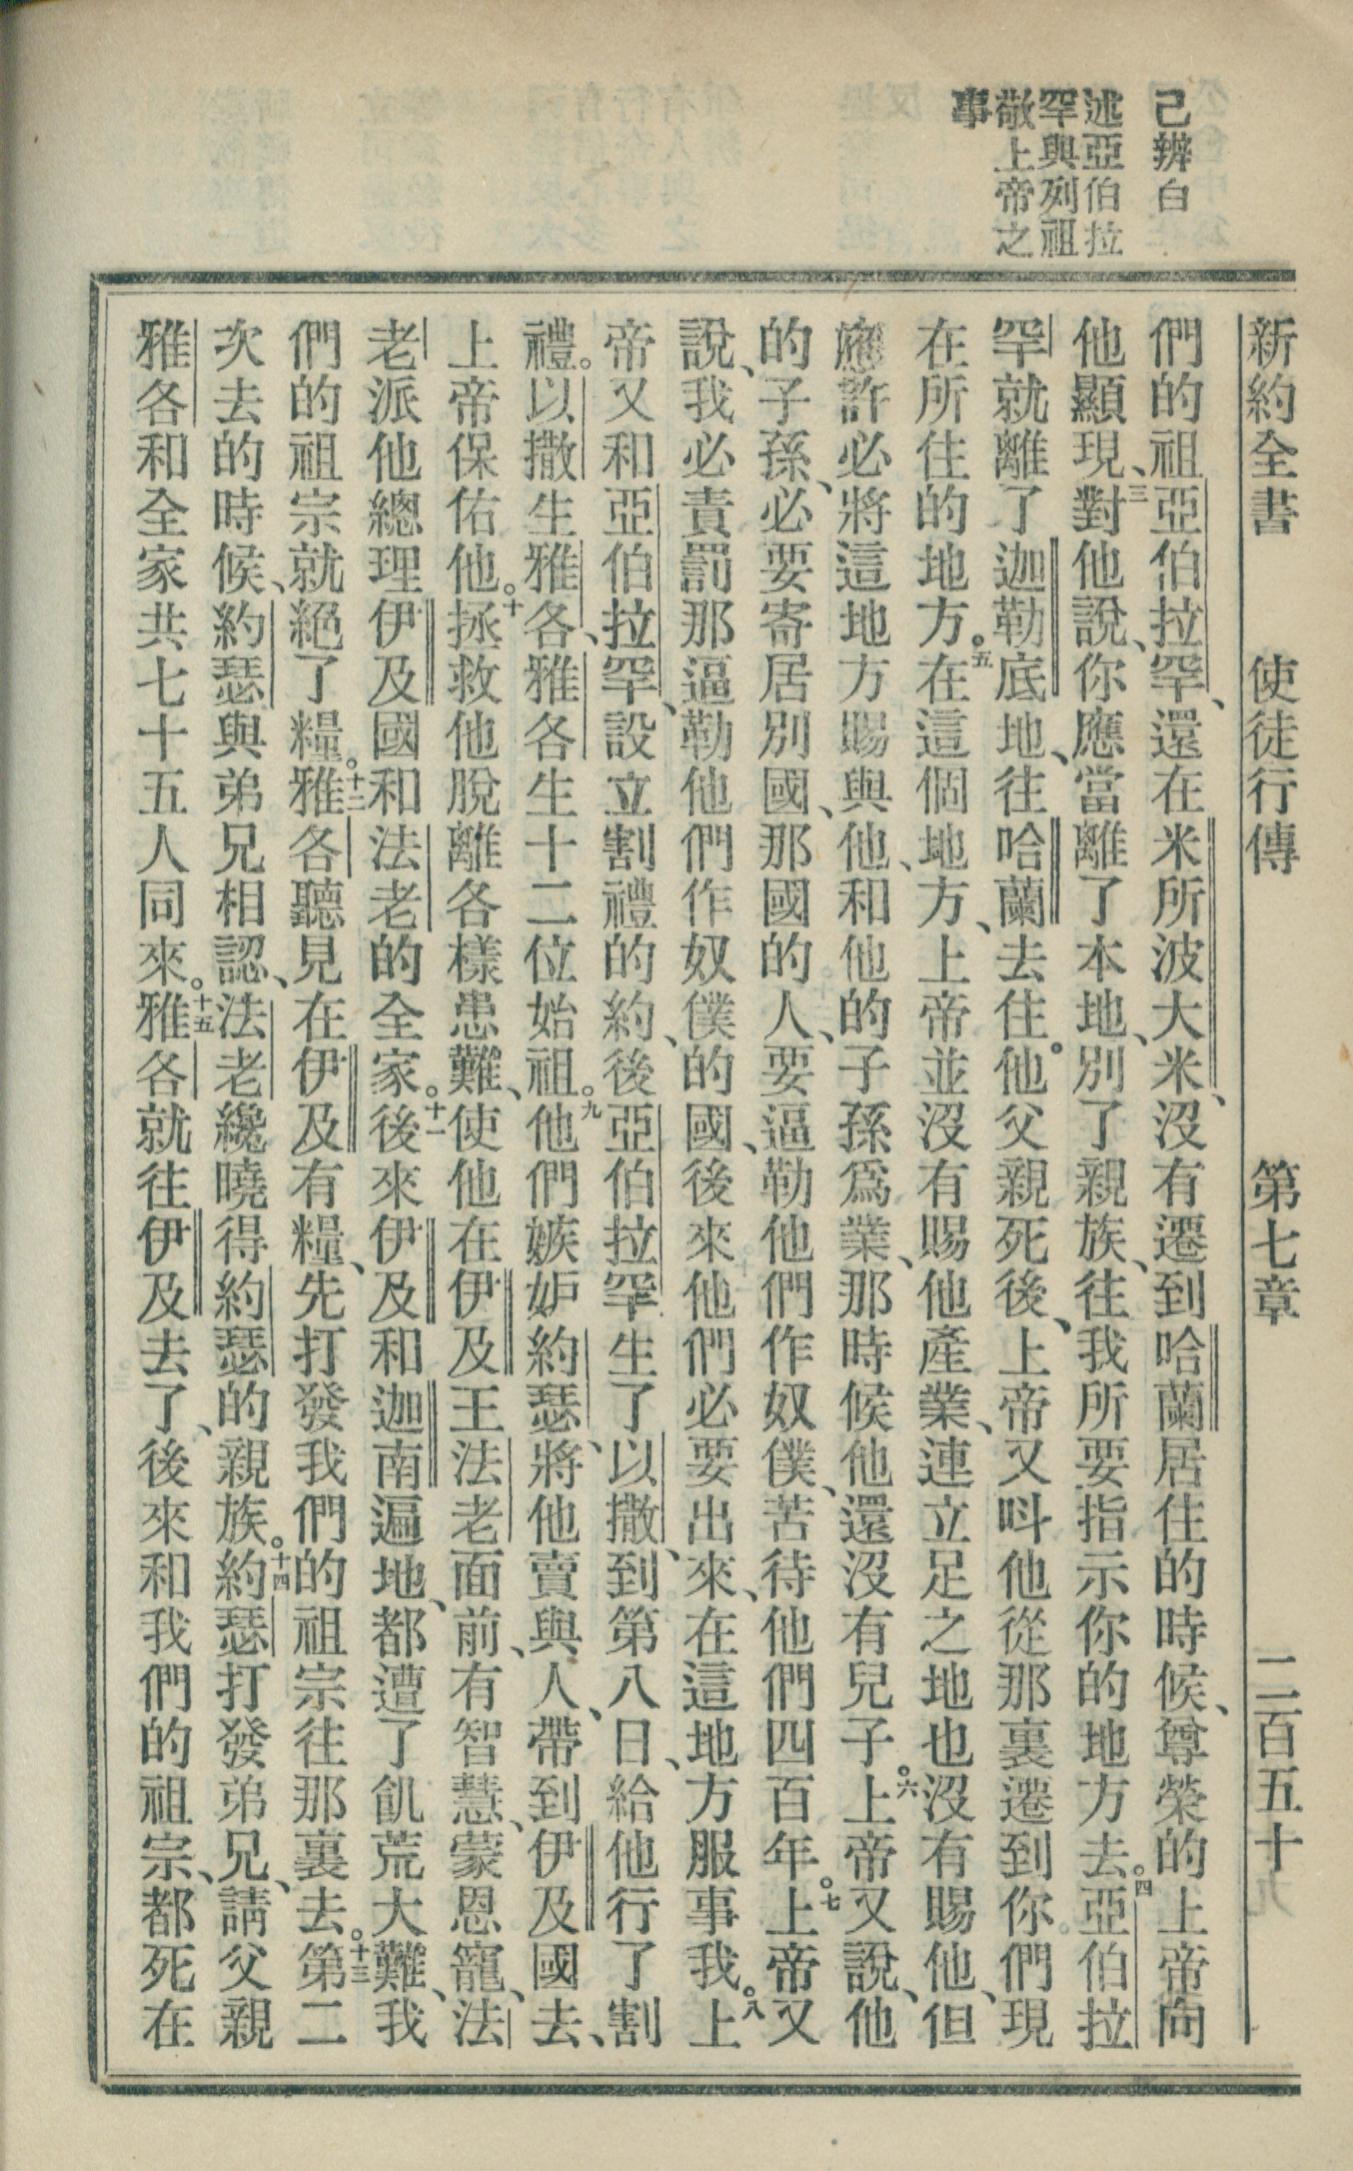 己辨白
述亞伯拉
罕與列祖
敬上帝之
事
新約全書 使徒行傳 第七章 二百五十九
們的祖亞伯拉罕、還在米所波大米、沒有遷到哈蘭居住的時候、尊榮的上帝向
他顯現、三對他說、你應當離了本地、別了親族、往我所要指示你的地方去。四亞伯拉
罕就離了迦勒底地、往哈蘭去住。他父親死後、上帝又呌他從那裏遷到你們現
在所住的地方。五在這個地方、上帝並沒有賜他產業、連立足之地也沒有賜他、但
應許必將這地方賜與他、和他的子孫爲業、那時候他還沒有兒子。六上帝又說、他
的子孫、必要寄居別國、那國的人、要逼勒他們作奴僕、苦待他們四百年。七上帝又
說、我必責罰那逼勒他們作奴僕的國、後來他們必要出來、在這地方服事我。八上
帝又和亞伯拉罕、設立割禮的約、後亞伯拉罕生了以撒、到第八日、給他行了割
禮。以撒生雅各、雅各生十二位始祖。九他們嫉妒約瑟、將他賣與人、帶到伊及國去、
上帝保佑他。十拯救他脫離各樣患難、使他在伊及王法老面前、有智慧、蒙恩寵、法
老派他總理伊及國和法老的全家。十一後來伊及和迦南遍地、都遭了飢荒大難、我
們的祖宗就絕了糧。十二雅各聽見在伊及有糧、先打發我們的祖宗往那裏去。十三第二
次去的時候、約瑟與弟兄相認、法老纔曉得約瑟的親族。十四約瑟打發弟兄、請父親
雅各和全家共七十五人同來。十五雅各就往伊及去了、後來和我們的祖宗、都死在